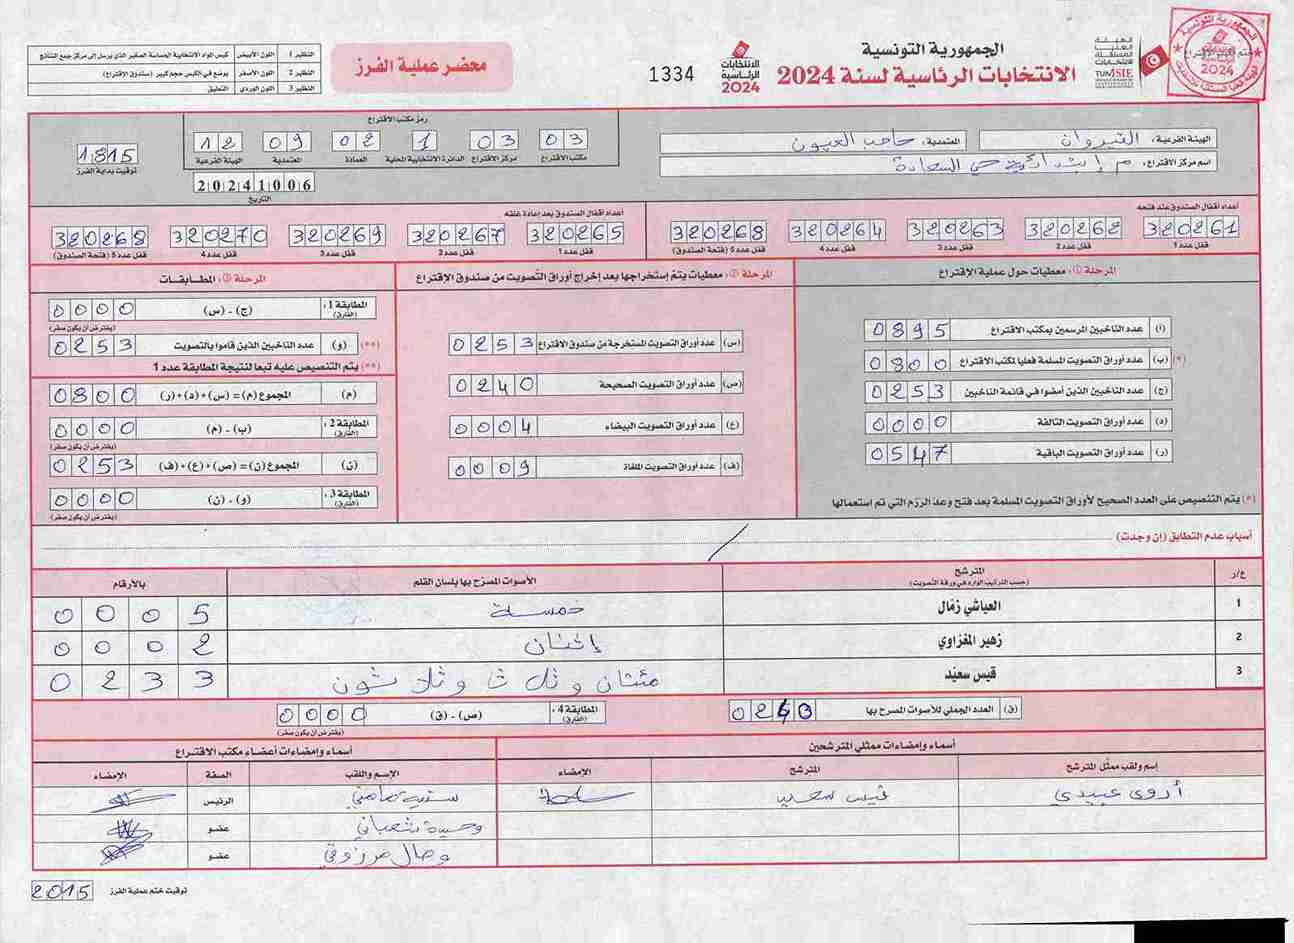 الجمهورية التونسية
الانتخابات الرئاسية لسنة 2024
الهيئة العليا المستقلة للانتخابات
TUNISIE
الانتخابات الرئاسية 2024
1334
محضر عملية الفرز
النظير 1 اللون الأبيض كيس المواد الانتخابية الحساسة الصغير الذي يرسل إلى مركز جمع النتائج
النظير 2 اللون الأصفر يوضع في الكيس حجم كبير (صندوق الإقتراع)
النظير 3 اللون الوردي التعليق
الهيئة الفرعية: القيروان المعتمدية: حاجب العيون
اسم مركز الإقتراع: م إبتدائية حي السعادة
رمز مكتب الاقتراع
03 03 1 02 09 12
مكتب الاقتراع مركز الاقتراع الدائرة الانتخابية المحلية العمادة المعتمدية الهيئة الفرعية
20241006
التاريخ
1815
توقيت بداية الفرز
أعداد أقفال الصندوق عند فتحه
320261 320262 320263 320264 320268
قفل عدد 1 قفل عدد 2 قفل عدد 3 قفل عدد 4 قفل عدد 5 (فتحة الصندوق)
أعداد أقفال الصندوق بعد إعادة غلقه
320265 320267 320269 320270 320268
قفل عدد 1 قفل عدد 2 قفل عدد 3 قفل عدد 4 قفل عدد 5 (فتحة الصندوق)
المرحلة ①: معطيات حول عملية الإقتراع
(أ) عدد الناخبين المرسمين بمكتب الاقتراع 0895
(*) (ب) عدد أوراق التصويت المسلمة فعليا لمكتب الاقتراع 0800
(ج) عدد الناخبين الذين أمضوا في قائمة الناخبين 0253
(د) عدد أوراق التصويت التالفة 0000
(ر) عدد أوراق التصويت الباقية 0547
(*) يتم التنصيص على العدد الصحيح لأوراق التصويت المسلمة بعد فتح وعد الرزم التي تم استعمالها
المرحلة ②: معطيات يتم إستخراجها بعد إخراج أوراق التصويت من صندوق الإقتراع
(س) عدد أوراق التصويت المستخرجة من صندوق الاقتراع 0253
(ص) عدد أوراق التصويت الصحيحة 0240
(ع) عدد أوراق التصويت البيضاء 0004
(ف) عدد أوراق التصويت الملغاة 0009
المرحلة ③: المطابقات
المطابقة 1: (الفارق) (ج) - (س) 0000
(يفترض أن يكون صفر)
(**) (و) عدد الناخبين الذين قاموا بالتصويت 0253
(**) يتم التنصيص عليه تبعا لنتيجة المطابقة عدد 1
(م) المجموع (م) = (س)+(د)+(ر) 0800
المطابقة 2: (الفارق) (ب) - (م) 0000
(يفترض أن يكون صفر)
(ن) المجموع (ن) = (ص)+(ع)+(ف) 0253
المطابقة 3: (الفارق) (و) - (ن) 0000
(يفترض أن يكون صفر)
أسباب عدم التطابق (إن وجدت)
ع/ر المترشح الأصوات المصرح بها بلسان القلم بالأرقام
(حسب الترتيب الوارد في ورقة التصويت)
1 العياشي زمّال خمسة 0005
2 زهير المغزاوي إثنان 0002
3 قيس سعيّد مئتان و ثلاث و ثلاثون 0233
(ق) العدد الجملي للأصوات المصرح بها 0240
المطابقة 4: (الفارق) (ص) - (ق) 0000
(يفترض أن يكون صفر)
أسماء وإمضاءات ممثلي المترشحين
إسم ولقب ممثل المترشح المترشح الإمضاء
أروى عبيدي قيس سعيد
أسماء وإمضاءات أعضاء مكتب الاقتراع
الإسم واللقب الصفة الإمضاء
الرئيس
وحيدة شعباني عضو
وصال مرزوقي عضو
توقيت ختم عملية الفرز 2015